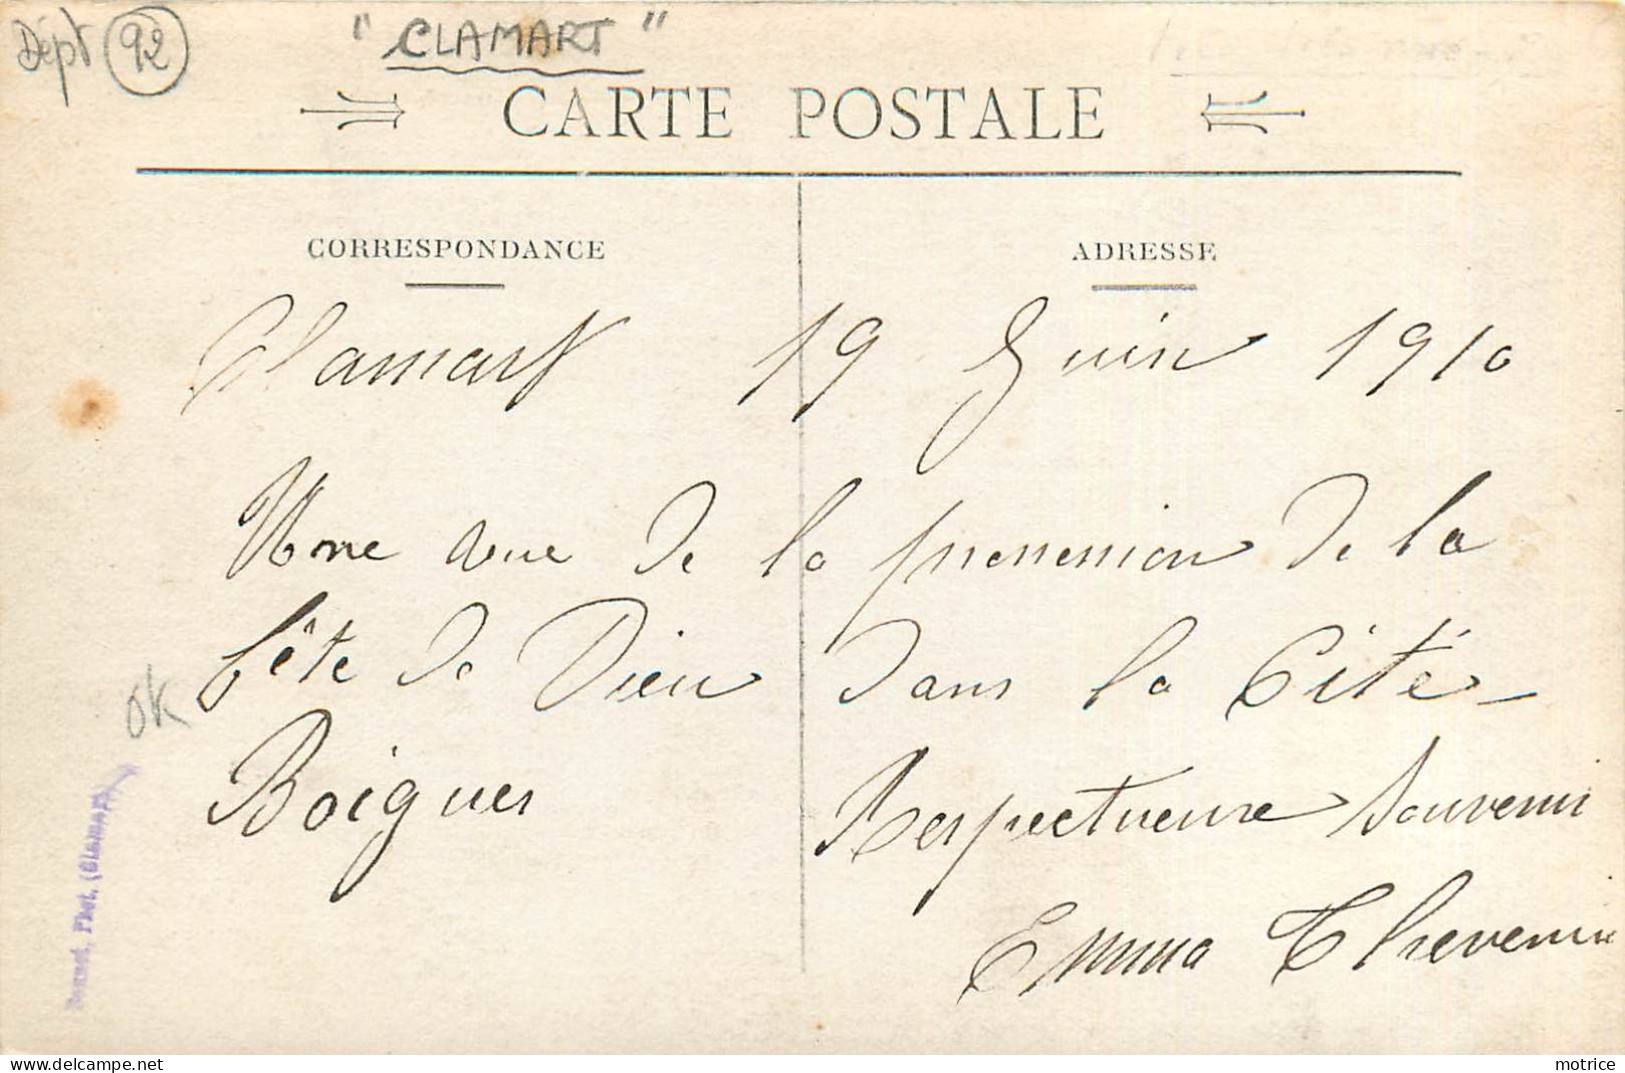 Dépt 92 " CLAMART "
CARTE POSTALE
CORRESPONDANCE
ADRESSE
Clamart 19 Juin 1910
Une vue de la procession de la
fête de Dieu dans la Cité
Boigues
Respectueux Souvenir
Emma Thevenin
ok
Bonnet, Phot. (Clamart)
motrice